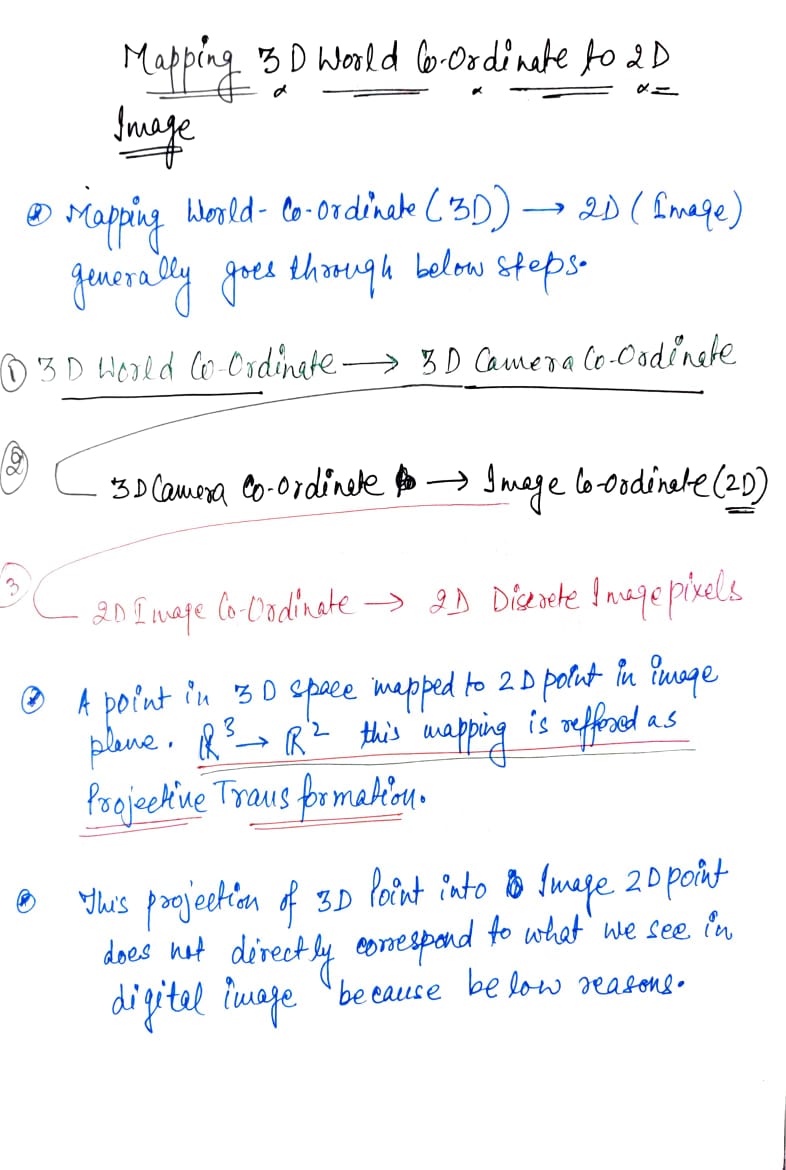 Mapping 3D World Co-Ordinate to 2D
Image
Mapping World-Co-ordinate (3D) → 2D (Image)
generally goes through below steps.
① 3D World Co-Ordinate → 3D Camera Co-Ordinate
② 3D Camera Co-ordinate → Image Co-ordinate (2D)
③ 2D Image Co-Ordinate → 2D Discrete Image pixels
A point in 3D space mapped to 2D point in image
plane. ℝ³ → ℝ² this mapping is reffered as
Projective Transformation.
This projection of 3D Point into Image 2D point
does not directly correspond to what we see in
digital image because below reasons.